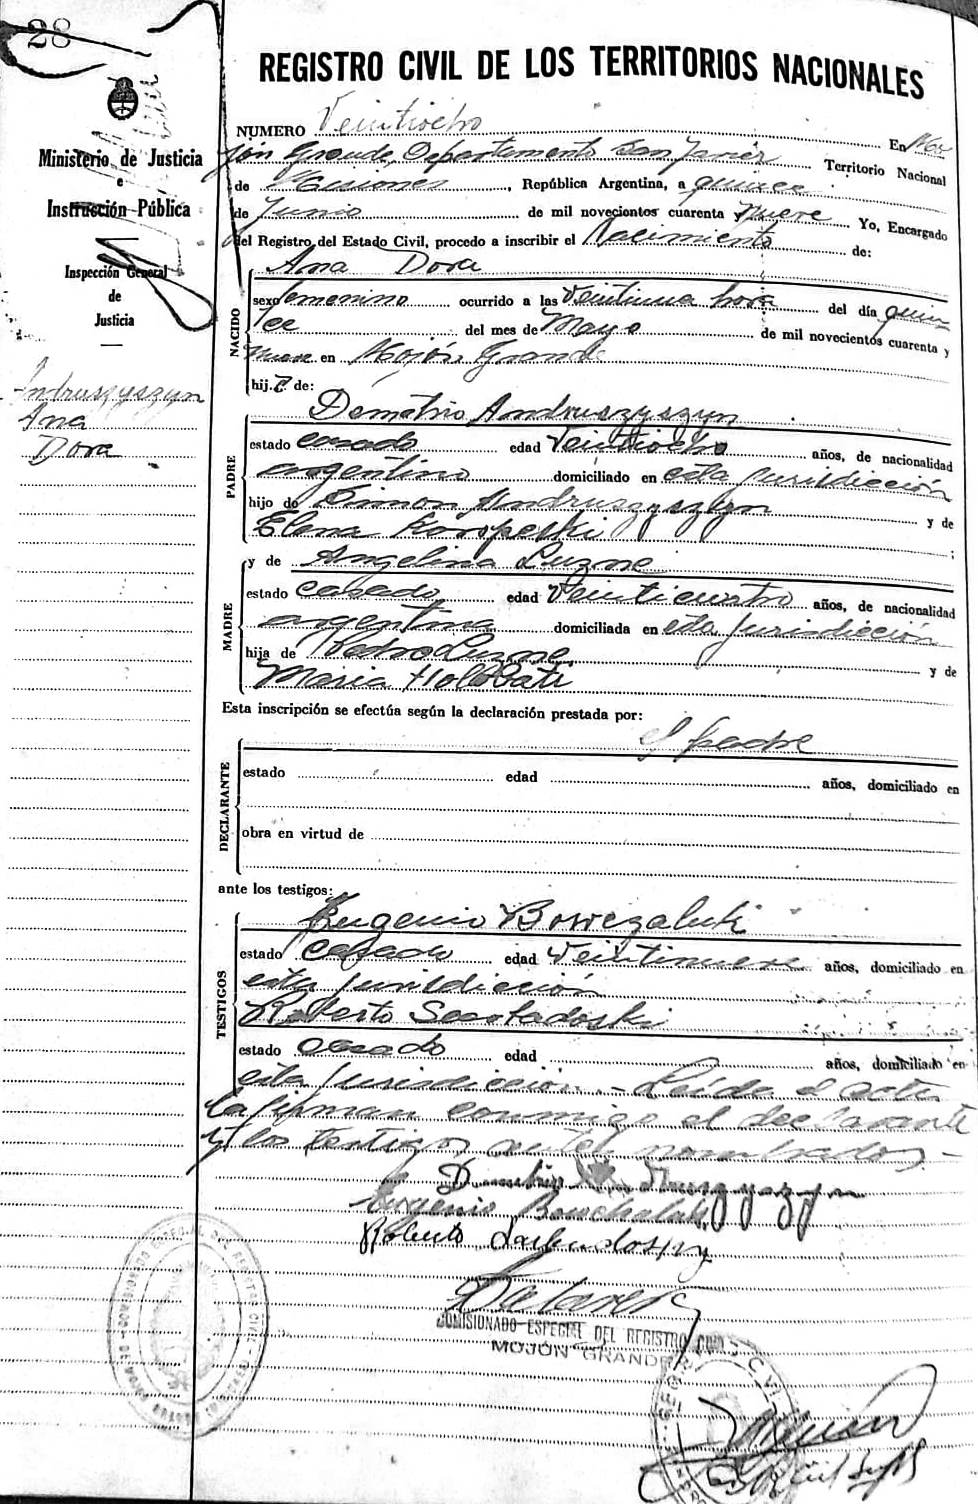 28
Ministerio de Justicia
e
Instrucción Pública
Inspección General
de
Justicia
Andruszyszyn
Ana
Dora
REGISTRO CIVIL DE LOS TERRITORIOS NACIONALES
NUMERO Veintiocho En Mo
jón Grande, Departamento San Javier Territorio Nacional
de Misiones, República Argentina, a quince
de Junio de mil novecientos cuarenta y nueve Yo, Encargado
del Registro del Estado Civil, procedo a inscribir el Nacimiento de:
Ana Dora
NACIDO
sexo femenino ocurrido a las veintiuna hora del día quin
ce del mes de Mayo de mil novecientos cuarenta y
nueve en Mojón Grande
hij.a de:
Demetrio Andruszyszyn
PADRE
estado casado edad veintiocho años, de nacionalidad
argentino domiciliado en esta jurisdicción
hijo de Simon Andruszyszyn y de
Elena ;
MADRE
y de Angelina Luzne
estado casada edad veinticuatro años, de nacionalidad
argentina domiciliada en esta jurisdicción
hija de Pedro Luzne y de
Maria
Esta inscripción se efectúa según la declaración prestada por:
el padre
DECLARANTE
estado edad años, domiciliado en
obra en virtud de
ante los testigos:
TESTIGOS
Eugenio
estado casado edad veintinueve años, domiciliado en
esta jurisdicción
Roberto
estado casado edad años, domiciliado en
esta jurisdicción.- Leída el acta
la firman conmigo el declarante
y los testigos nombrados.-
Demetrio Andruszyszyn
Eugenio
Roberto
COMISIONADO ESPECIAL DEL REGISTRO CIVIL
MOJÓN GRANDE